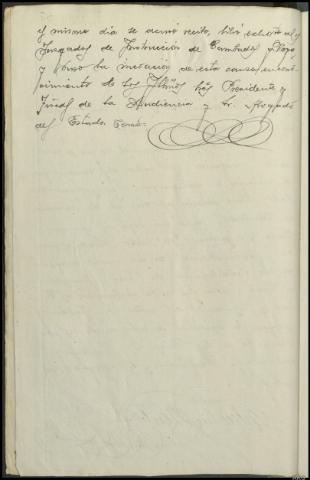 y mismo día se acusó recibo, libré exhorto a los
Juzgados de Instrucción de Cambados y
y puso la incoación de esta causa en cono-
cimiento de los Iltmos Sres Presidente y
Fiscal de la Audiencia y Sr. Abogado
del Estado. Doy fe.